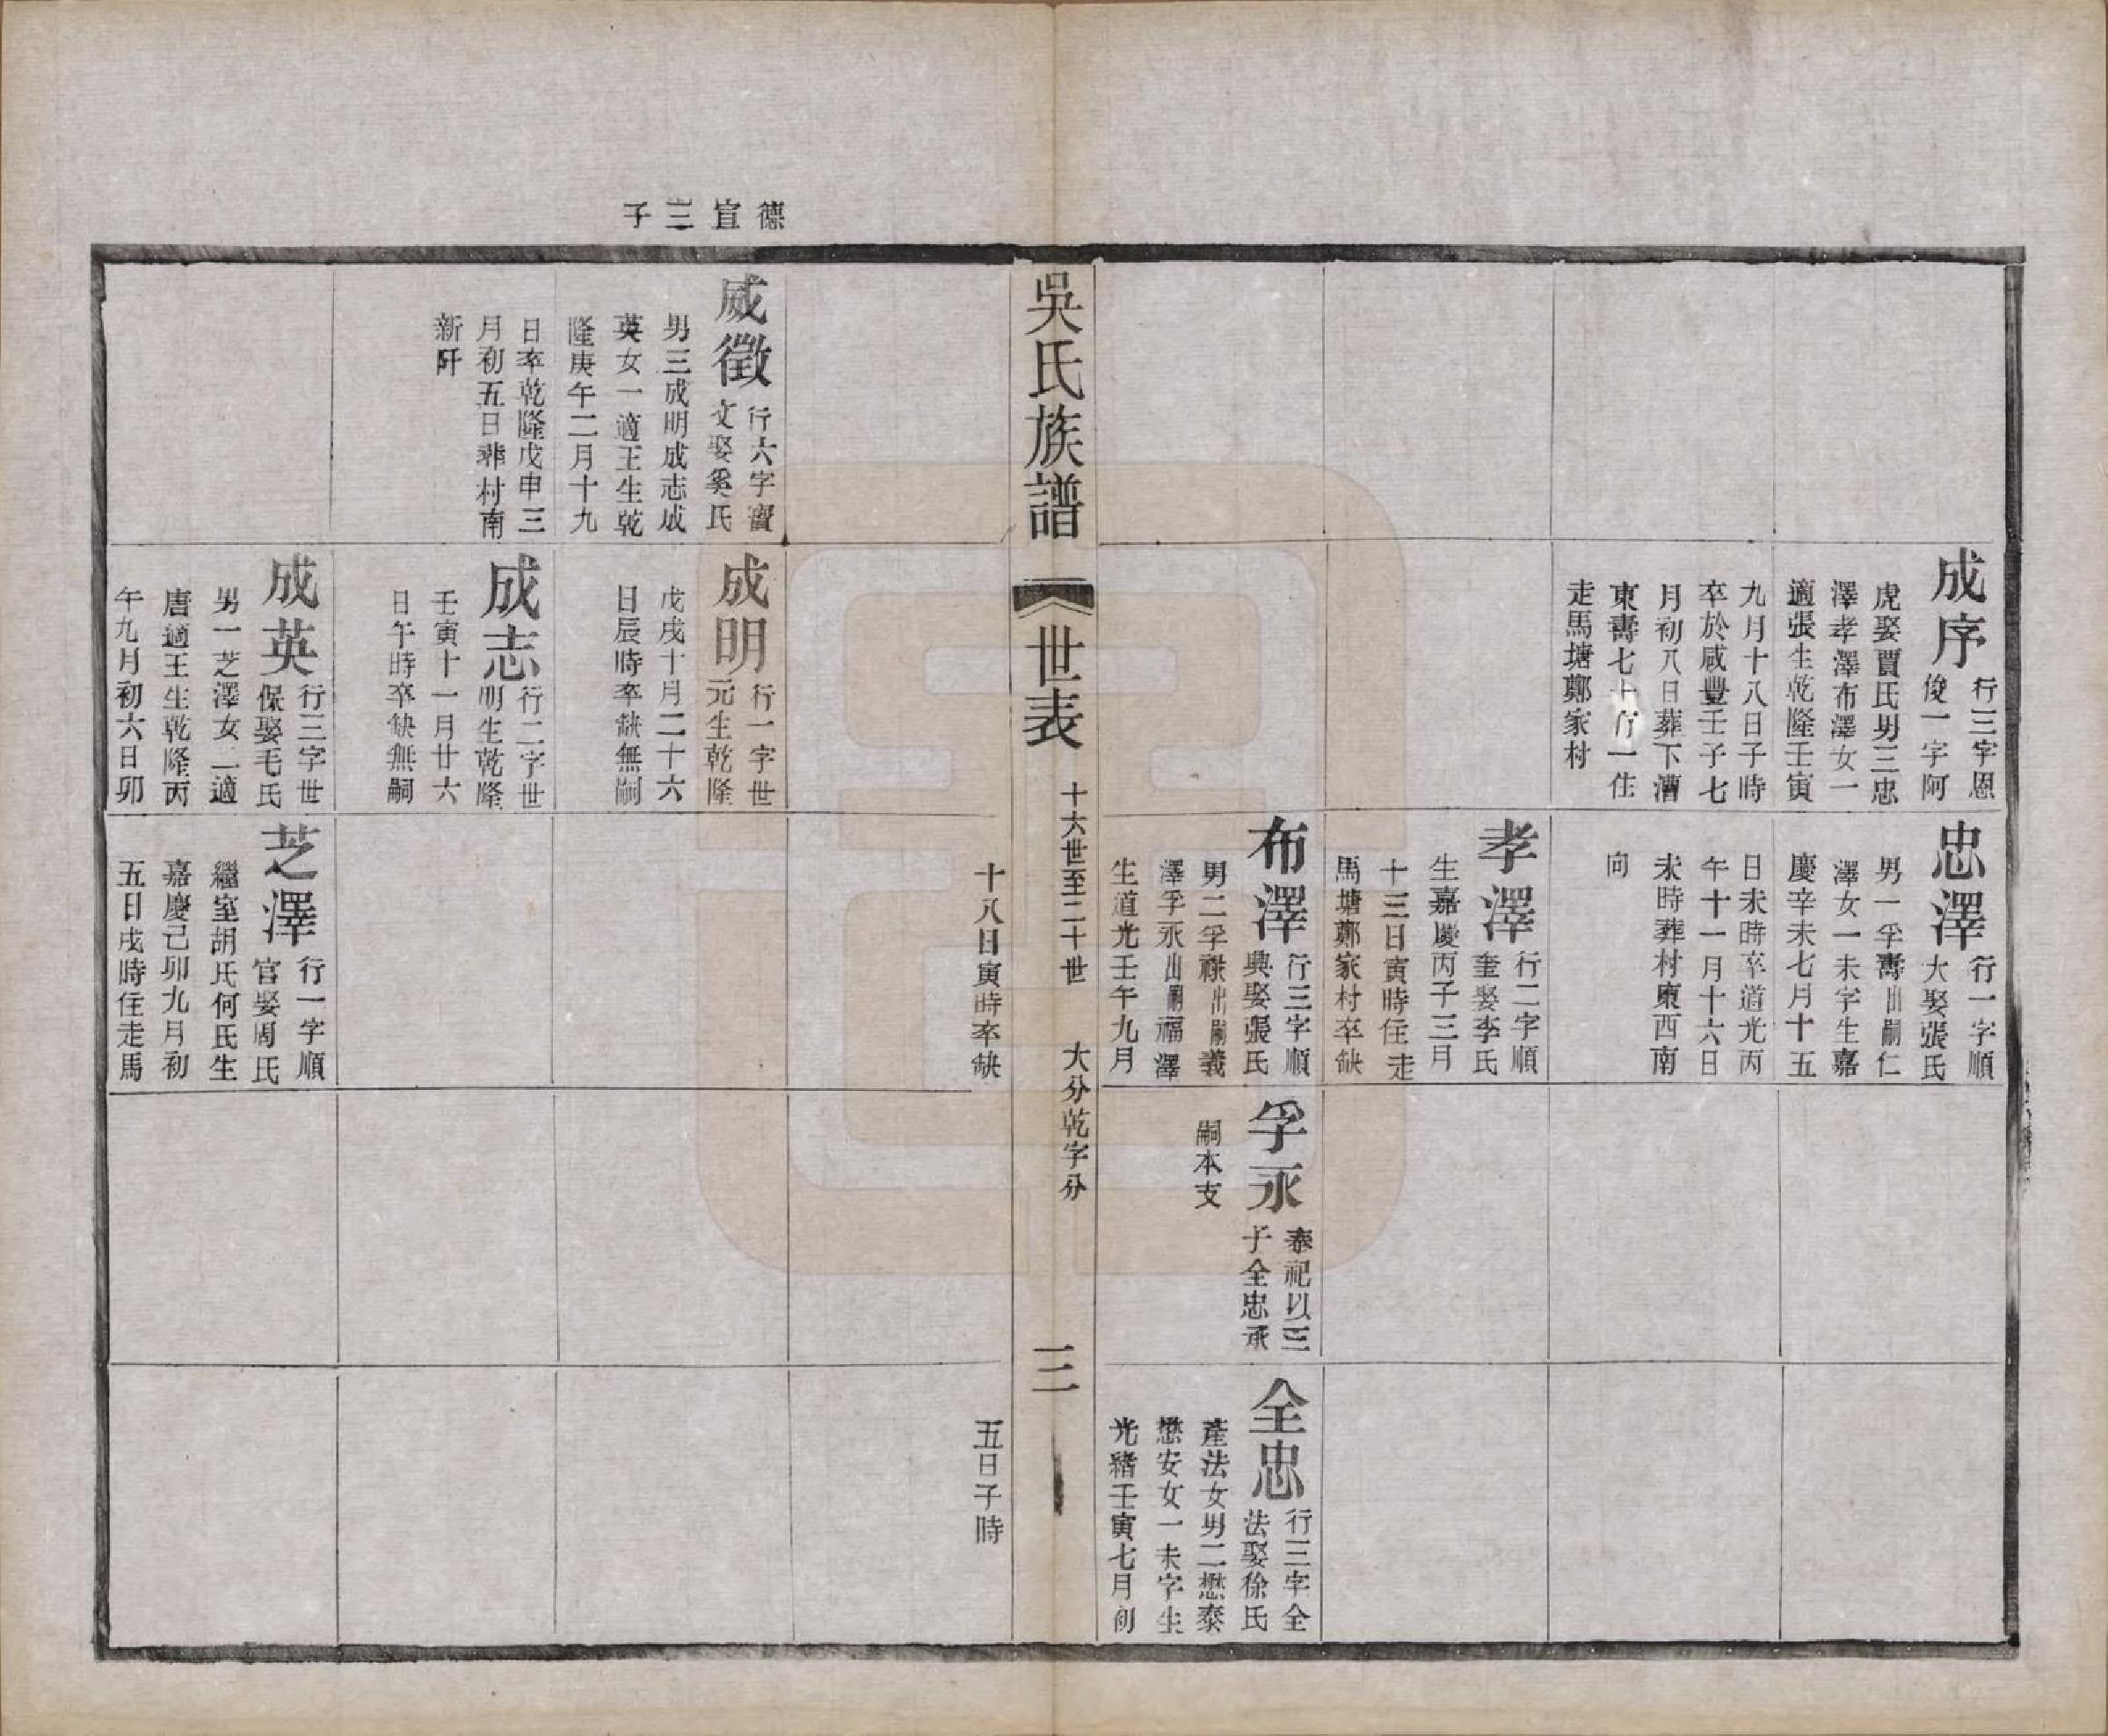 成序
行三字恩
俊一字阿
虎娶賈氏男三忠
澤孝澤布澤女一
適張生乾隆壬寅
九月十八日子時
卒於咸豐壬子七
月初八日葬下漕
東壽七十有一住
走馬塘鄭家村
忠澤
行一字順
大娶張氏
男一孚壽出嗣仁
澤女一未字生嘉
慶辛未七月十五
日未時卒道光丙
午十一月十六日
未時葬村東西南
向
孝澤
行二字順
奎娶李氏
生嘉慶丙子三月
十三日寅時住走
馬塘鄭家村卒缺
布澤
行三字順
典娶張氏
男二孚祿出嗣義
澤孚永出嗣福澤
生道光壬午九月
孚永
奉祀以三
子全忠承
嗣本支
全忠
行三字全
法娶徐氏
產法女男二懋泰
懋安女一未字生
光緒壬寅七月初
吳氏族譜
世表
十六世至二十世
大分乾字分
三
十八日寅時卒缺
五日子時
德宣三子
咸徵
行六字寶
文娶奚氏
男三成明成志成
英女一適王生乾
隆庚午二月十九
日卒乾隆戊申三
月初五日葬村南
新阡
成明
行一字世
元生乾隆
戊戌十月二十六
日辰時卒缺無嗣
成志
行二字世
明生乾隆
壬寅十一月廿六
日午時卒缺無嗣
成英
行三字世
保娶毛氏
男一芝澤女二適
唐適王生乾隆丙
午九月初六日卯
芝澤
行一字順
官娶周氏
繼室胡氏何氏生
嘉慶己卯九月初
五日戌時住走馬